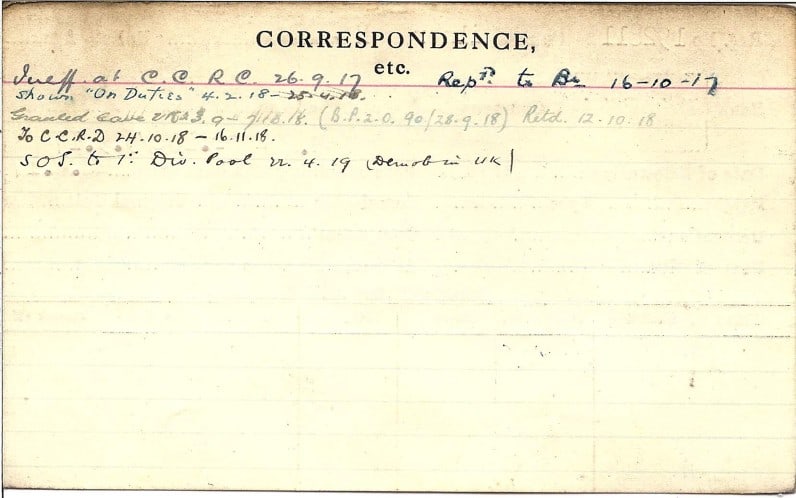 CORRESPONDENCE,
etc.
Ineff. at C.C.R.C. 26.9.17 Rep^d. to Bn 16-10-17
Shown "On Duties" 4.2.18 - 25.4.18.
Granted leave UK 23.9 - .18. (B.P.2.O. 90/28.9.18) Retd. 12.10.18
To C.C.R.D 24.10.18 - 16.11.18.
S.O.S. to 1st Div. Pool 22.4.19 (Demob in UK)